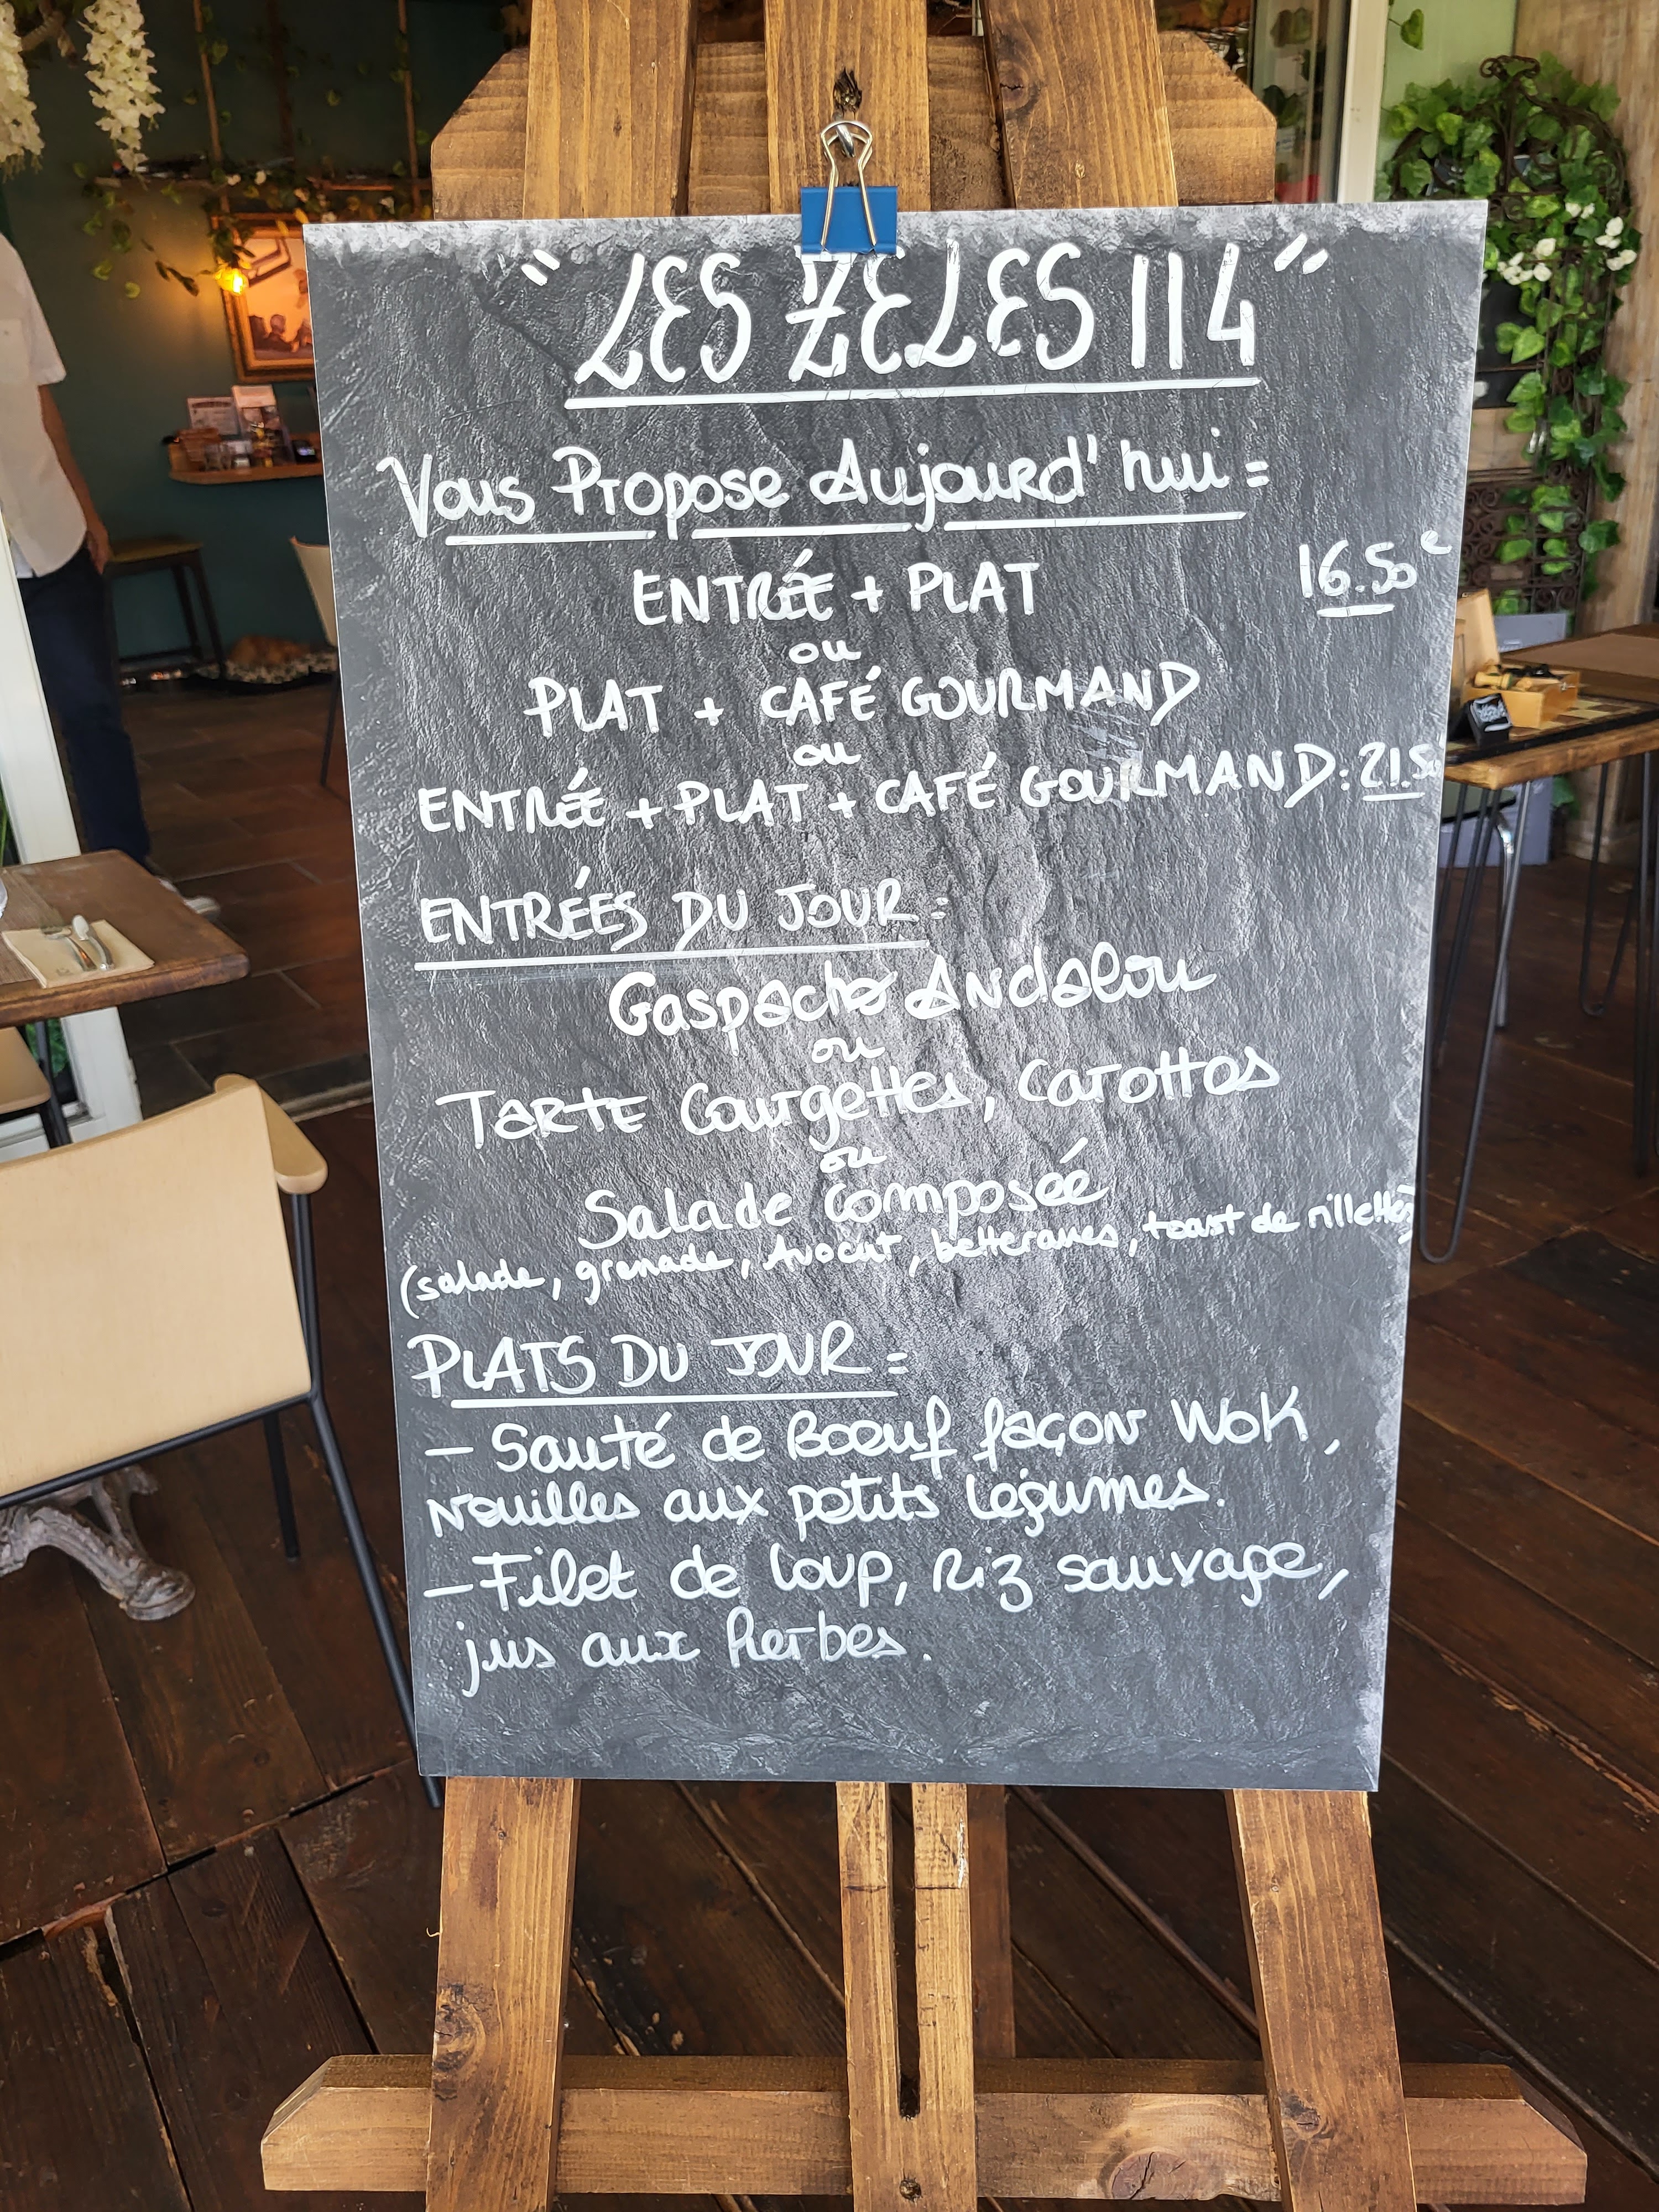 "LES ZELES 114"
Vous Propose Aujourd'hui =
ENTRÉE + PLAT 16.50€
ou
PLAT + CAFÉ GOURMAND
ou
ENTRÉE + PLAT + CAFÉ GOURMAND : 21.50
ENTRÉES DU JOUR =
Gaspacho Andalou
ou
Tarte Courgettes, Carottes
ou
Salade Composée
(salade, grenade, Avocat, betteraves, toast de rillettes)
PLATS DU JOUR =
- Sauté de Boeuf façon Wok,
Nouilles aux petits légumes.
- Filet de loup, Riz sauvage,
jus aux herbes.